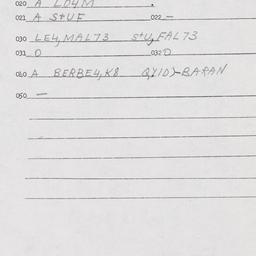 020 A LD4M
021 A StUF 022 —
030 LE4, MAL73 StU, FAL73
031 O 032 O
040 A BERBE4, K8 Q(10)-BARAN
050 —